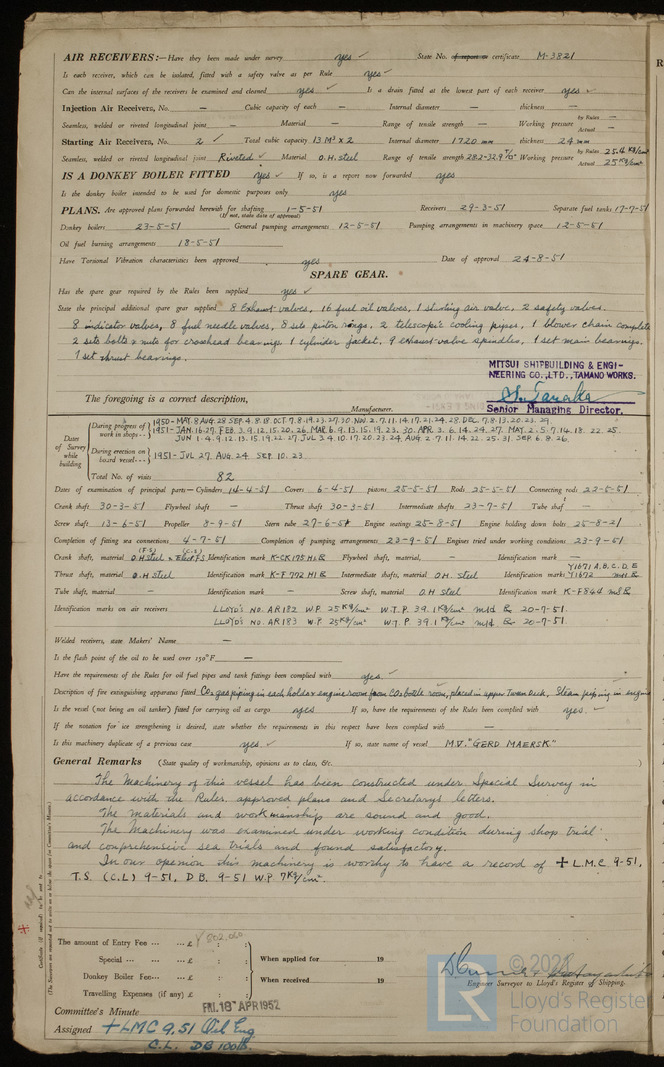 AIR RECEIVERS:—Have they been made under survey yes ✓ State No. of report or certificate M-3821
Is each receiver, which can be isolated, fitted with a safety valve as per Rule yes ✓
Can the internal surfaces of the receivers be examined and cleaned yes ✓ Is a drain fitted at the lowest part of each receiver yes ✓
Injection Air Receivers, No. — Cubic capacity of each — Internal diameter — thickness —
Seamless, welded or riveted longitudinal joint — Material — Range of tensile strength — Working pressure by Rules — Actual —
Starting Air Receivers, No. 2 ✓ Total cubic capacity 13 M³ x 2 Internal diameter 1720 mm thickness 24 mm
Seamless, welded or riveted longitudinal joint Riveted ✓ Material O.H. steel Range of tensile strength 28.2-32.9 T/□" Working pressure by Rules 25.4 Kg/cm² Actual 25 Kg/cm²
IS A DONKEY BOILER FITTED yes ✓ If so, is a report now forwarded yes
Is the donkey boiler intended to be used for domestic purposes only yes
PLANS. Are approved plans forwarded herewith for shafting 1-5-51 Receivers 29-3-51 Separate fuel tanks 17-7-51
(If not, state date of approval)
Donkey boilers 23-5-51 General pumping arrangements 12-5-51 Pumping arrangements in machinery space 12-5-51
Oil fuel burning arrangements 18-5-51
Have Torsional Vibration characteristics been approved yes Date of approval 24-8-51
SPARE GEAR.
Has the spare gear required by the Rules been supplied yes ✓
State the principal additional spare gear supplied 8 Exhaust valves, 16 fuel oil valves, 1 starting air valve, 2 safety valves.
8 indicator valves, 8 fuel needle valves, 8 sets piston rings, 2 telescopic cooling pipes, 1 blower chain complete
2 sets bolts & nuts for crosshead bearings 1 cylinder jacket, 9 exhaust valve spindles, 1 set main bearings.
1 set thrust bearings.
MITSUI SHIPBUILDING & ENGI-
NEERING CO., LTD., TAMANO WORKS.
The foregoing is a correct description, S. Tanaka
Manufacturer. Senior Managing Director.
Dates of Survey while building
During progress of work in shops-- 1950- MAY. 8 AUG. 28 SEP. 4. 8. 18 OCT. 7. 8. 19. 23. 27. 30 NOV. 2. 7. 11. 14. 17. 21. 24. 28. DEC. 7. 8. 13. 20. 23. 29.
1951- JAN. 16. 27. FEB. 3. 9. 12. 15. 20. 26. MAR. 6. 9. 13. 15. 19. 23. 30. APR. 3. 6. 14. 24. 27. MAY. 2. 5. 7. 14. 18. 22. 25.
JUN 1. 4. 9. 12. 13. 15. 19. 22. 27 JUL 3. 4. 10. 17. 20. 23. 24. AUG. 2. 7. 11. 14. 22. 25. 31. SEP. 6. 8. 26.
During erection on board vessel--- 1951- JUL 27. AUG. 24 SEP. 10. 23.
Total No. of visits 82
Dates of examination of principal parts—Cylinders 14-4-51 Covers 6-4-51 pistons 25-5-51 Rods 25-5-51 Connecting rods 22-5-51
Crank shaft 30-3-51 Flywheel shaft — Thrust shaft 30-3-51 Intermediate shafts 23-7-51 Tube shaft —
Screw shaft 13-6-51 Propeller 8-9-51 Stern tube 27-6-51 Engine seatings 25-8-51 Engine holding down bolts 25-8-51
Completion of fitting sea connections 4-7-51 Completion of pumping arrangements 23-9-51 Engines tried under working conditions 23-9-51
Crank shaft, material (F.S) O.H Steel & (C.S) Elect F.S Identification mark K-CK 175 H1 & Flywheel shaft, material, — Identification mark —
Thrust shaft, material O.H Steel Identification mark K-F 772 H1 & Intermediate shafts, material O.H. steel Identification marks Y1671 A.B.C.D.E Y1672
Tube shaft, material — Identification mark — Screw shaft, material O.H steel Identification mark K-F844
Identification marks on air receivers LLOYD'S NO. AR182 W.P. 25 KG/cm² W.T.P. 39.1 KG/cm² 20-7-51.
LLOYD'S NO. AR183 W.P. 25 KG/cm² W.T.P. 39.1 KG/cm² 20-7-51.
Welded receivers, state Makers' Name —
Is the flash point of the oil to be used over 150°F —
Have the requirements of the Rules for oil fuel pipes and tank fittings been complied with yes. ✓
Description of fire extinguishing apparatus fitted CO₂ gas piping in each holds & engine room from CO₂ bottle room, placed in upper Tween Deck, Steam piping in engine
Is the vessel (not being an oil tanker) fitted for carrying oil as cargo yes If so, have the requirements of the Rules been complied with yes. ✓
If the notation for ice strengthening is desired, state whether the requirements in this respect have been complied with —
Is this machinery duplicate of a previous case yes. ✓ If so, state name of vessel M.V. "GERD MAERSK"
General Remarks (State quality of workmanship, opinions as to class, &c. )
The Machinery of this vessel has been constructed under Special Survey in
accordance with the Rules approved plans and Secretary's letters.
The materials and workmanship are sound and good.
The Machinery was examined under working condition during shop trial
and comprehensive sea trials and found satisfactory.
In our openion this machinery is worthy to have a record of ✠ L.M.C 9-51,
T.S (C.L) 9-51, D.B. 9-51 W.P. 7 Kg/cm².
The amount of Entry Fee ... £ ¥802,000
Special ... £ : :
Donkey Boiler Fee... £ : :
Travelling Expenses (if any) £ : :
When applied for 19
When received 19
Engineer Surveyor to Lloyd's Register of Shipping.
Committee's Minute FRI. 18 APR 1952
Assigned + LMC 9.51 Oil Eng
C.L. DB 100 lb.
Certificate (if required) to be sent to
(The Surveyors are requested not to write on or below the space for Committee's Minute.)
© 2021
LR
Lloyd's Register
Foundation